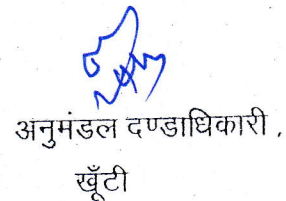 अनुमंडल दण्डाधिकारी ,
खूँटी